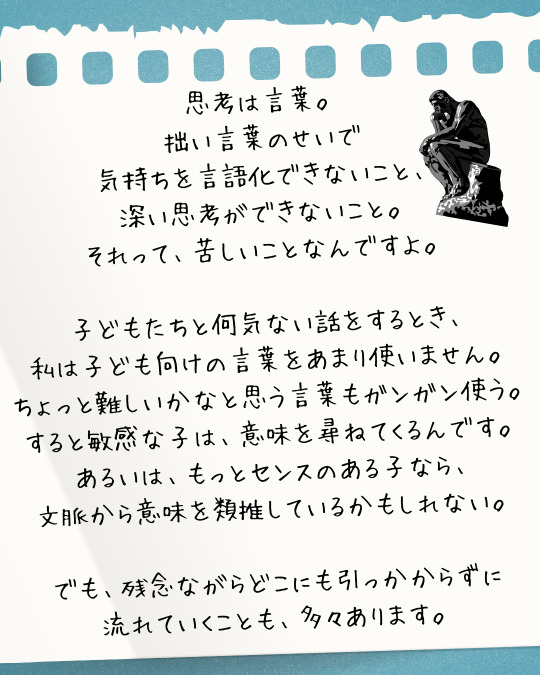 思考は言葉。
拙い言葉のせいで
気持ちを言語化できないこと、
深い思考ができないこと。
それって、苦しいことなんですよ。
子どもたちと何気ない話をするとき、
私は子ども向けの言葉をあまり使いません。
ちょっと難しいかなと思う言葉もガンガン使う。
すると敏感な子は、意味を尋ねてくるんです。
あるいは、もっとセンスのある子なら、
文脈から意味を類推しているかもしれない。
でも、残念ながらどこにも引っかからずに
流れていくことも、多々あります。